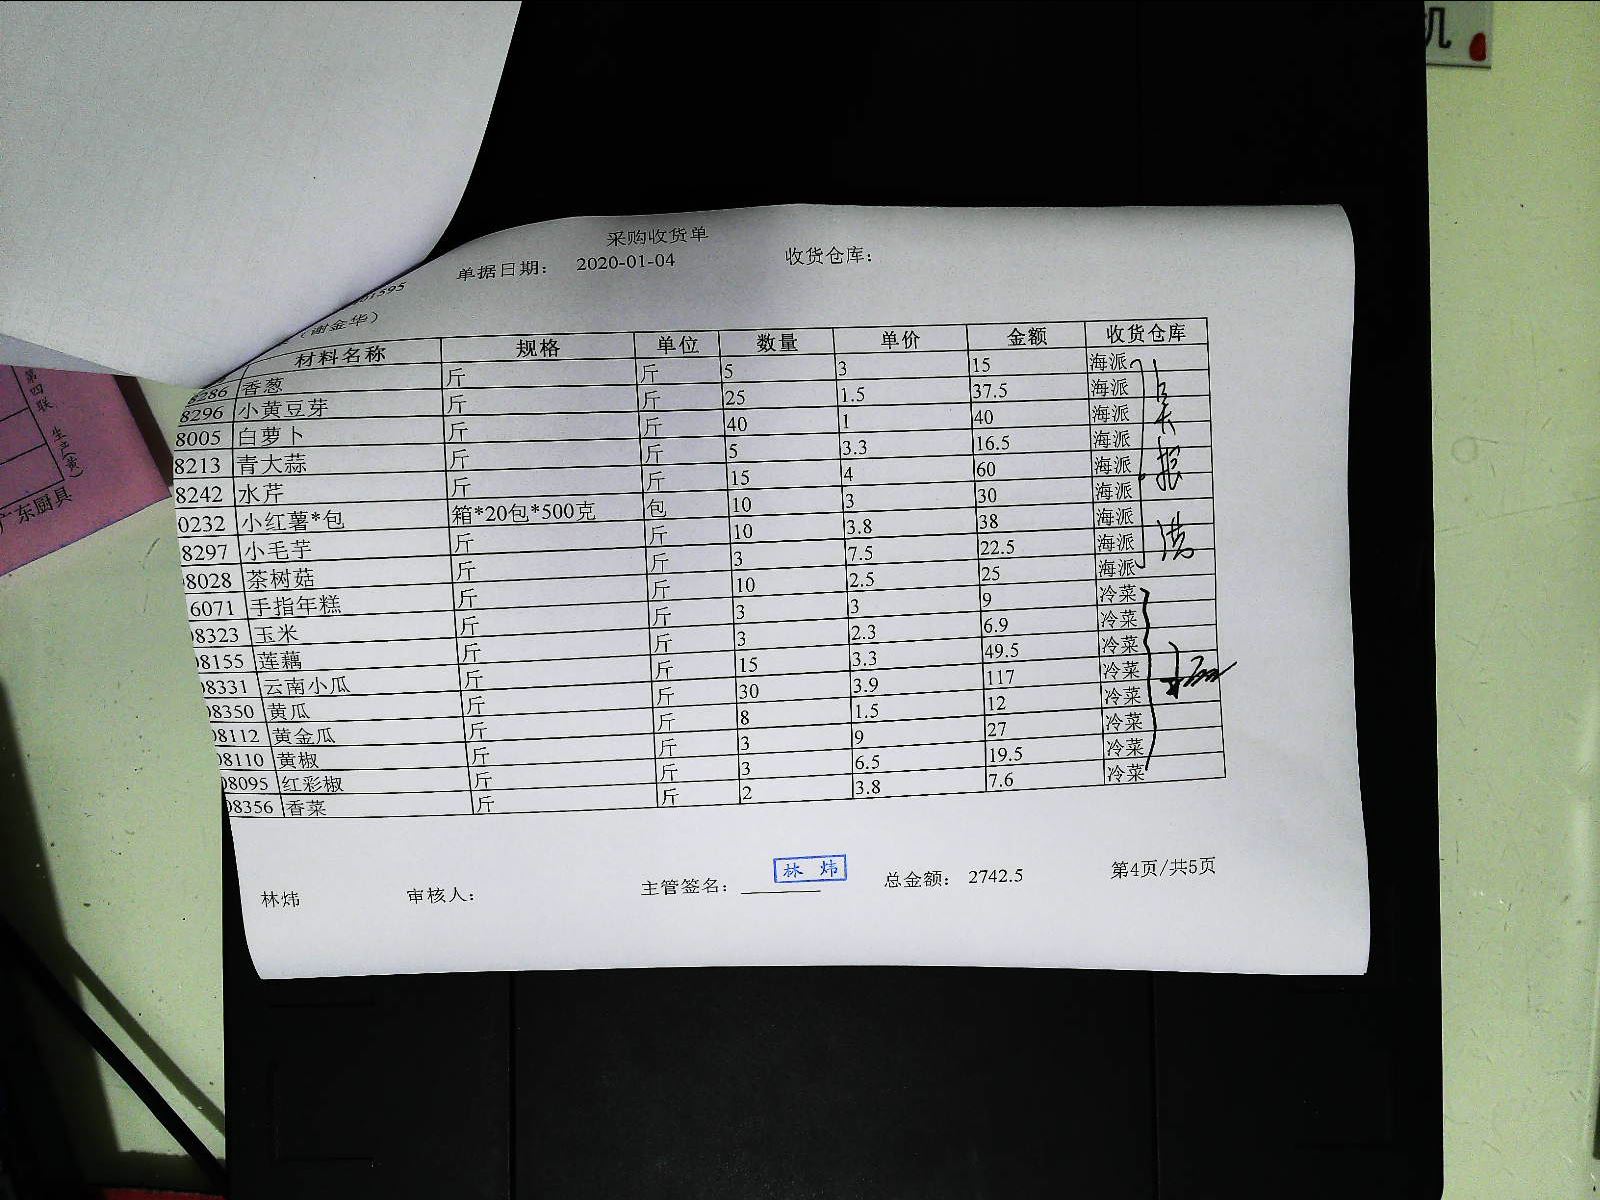 机
采购收货单
单据日期： 2020-01-04 收货仓库：
01595
（谢金华）
材料名称 规格 单位 数量 单价 金额 收货仓库
8286 香葱 斤 斤 5 3 15 海派
8296 小黄豆芽 斤 斤 25 1.5 37.5 海派
8005 白萝卜 斤 斤 40 1 40 海派
8213 青大蒜 斤 斤 5 3.3 16.5 海派
8242 水芹 斤 斤 15 4 60 海派
0232 小红薯*包 箱*20包*500克 包 10 3 30 海派
8297 小毛芋 斤 斤 10 3.8 38 海派
08028 茶树菇 斤 斤 3 7.5 22.5 海派
6071 手指年糕 斤 斤 10 2.5 25 海派
08323 玉米 斤 斤 3 3 9 冷菜
08155 莲藕 斤 斤 3 2.3 6.9 冷菜
08331 云南小瓜 斤 斤 15 3.3 49.5 冷菜
08350 黄瓜 斤 斤 30 3.9 117 冷菜
08112 黄金瓜 斤 斤 8 1.5 12 冷菜
08110 黄椒 斤 斤 3 9 27 冷菜
08095 红彩椒 斤 斤 3 6.5 19.5 冷菜
08356 香菜 斤 斤 2 3.8 7.6 冷菜
林炜 审核人： 主管签名： 林 炜 总金额： 2742.5 第4页/共5页
第四联 生产(黄)
广东厨具